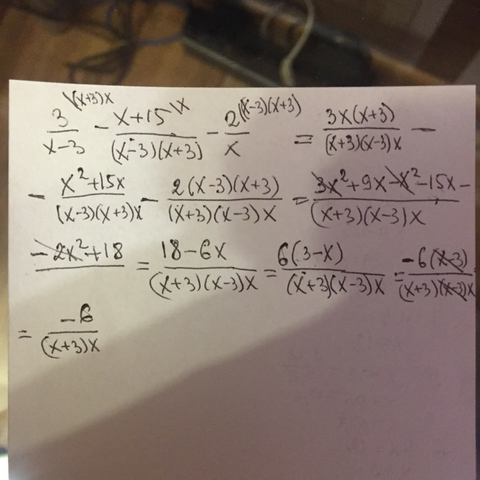 3/(x-3) \(x+3)x - (x+15)/((x-3)(x+3)) \x - 2/x \(x-3)(x+3) = 3x(x+3)/((x+3)(x-3)x) -
- (x²+15x)/((x-3)(x+3)x) - 2(x-3)(x+3)/((x+3)(x-3)x) = (3x²+9x-x²-15x-)/((x+3)(x-3)x)
-2x²+18 = (18-6x)/((x+3)(x-3)x) = 6(3-x)/((x+3)(x-3)x) = -6(x-3)/((x+3)(x-3)x)
= -6/((x+3)x)